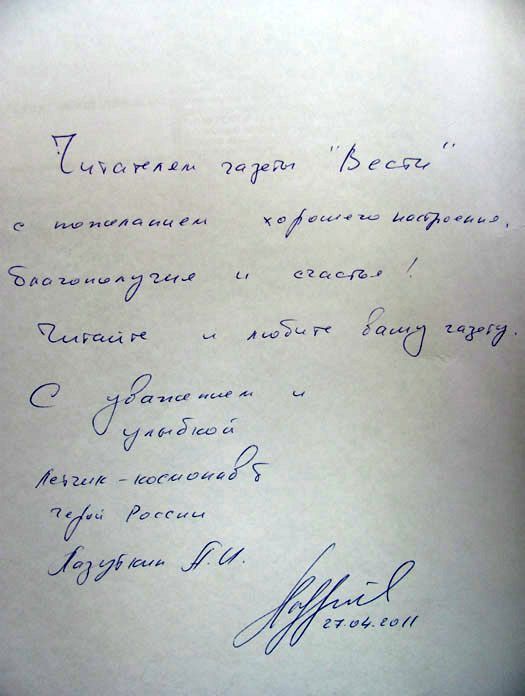 Читателям газеты "Вести"
с пожеланием хорошего настроения,
благополучия и счастья!
Читайте и любите вашу газету.
С уважением и
улыбкой
Летчик-космонавт
Герой России
Лазуткин А.И.
27.04.2011